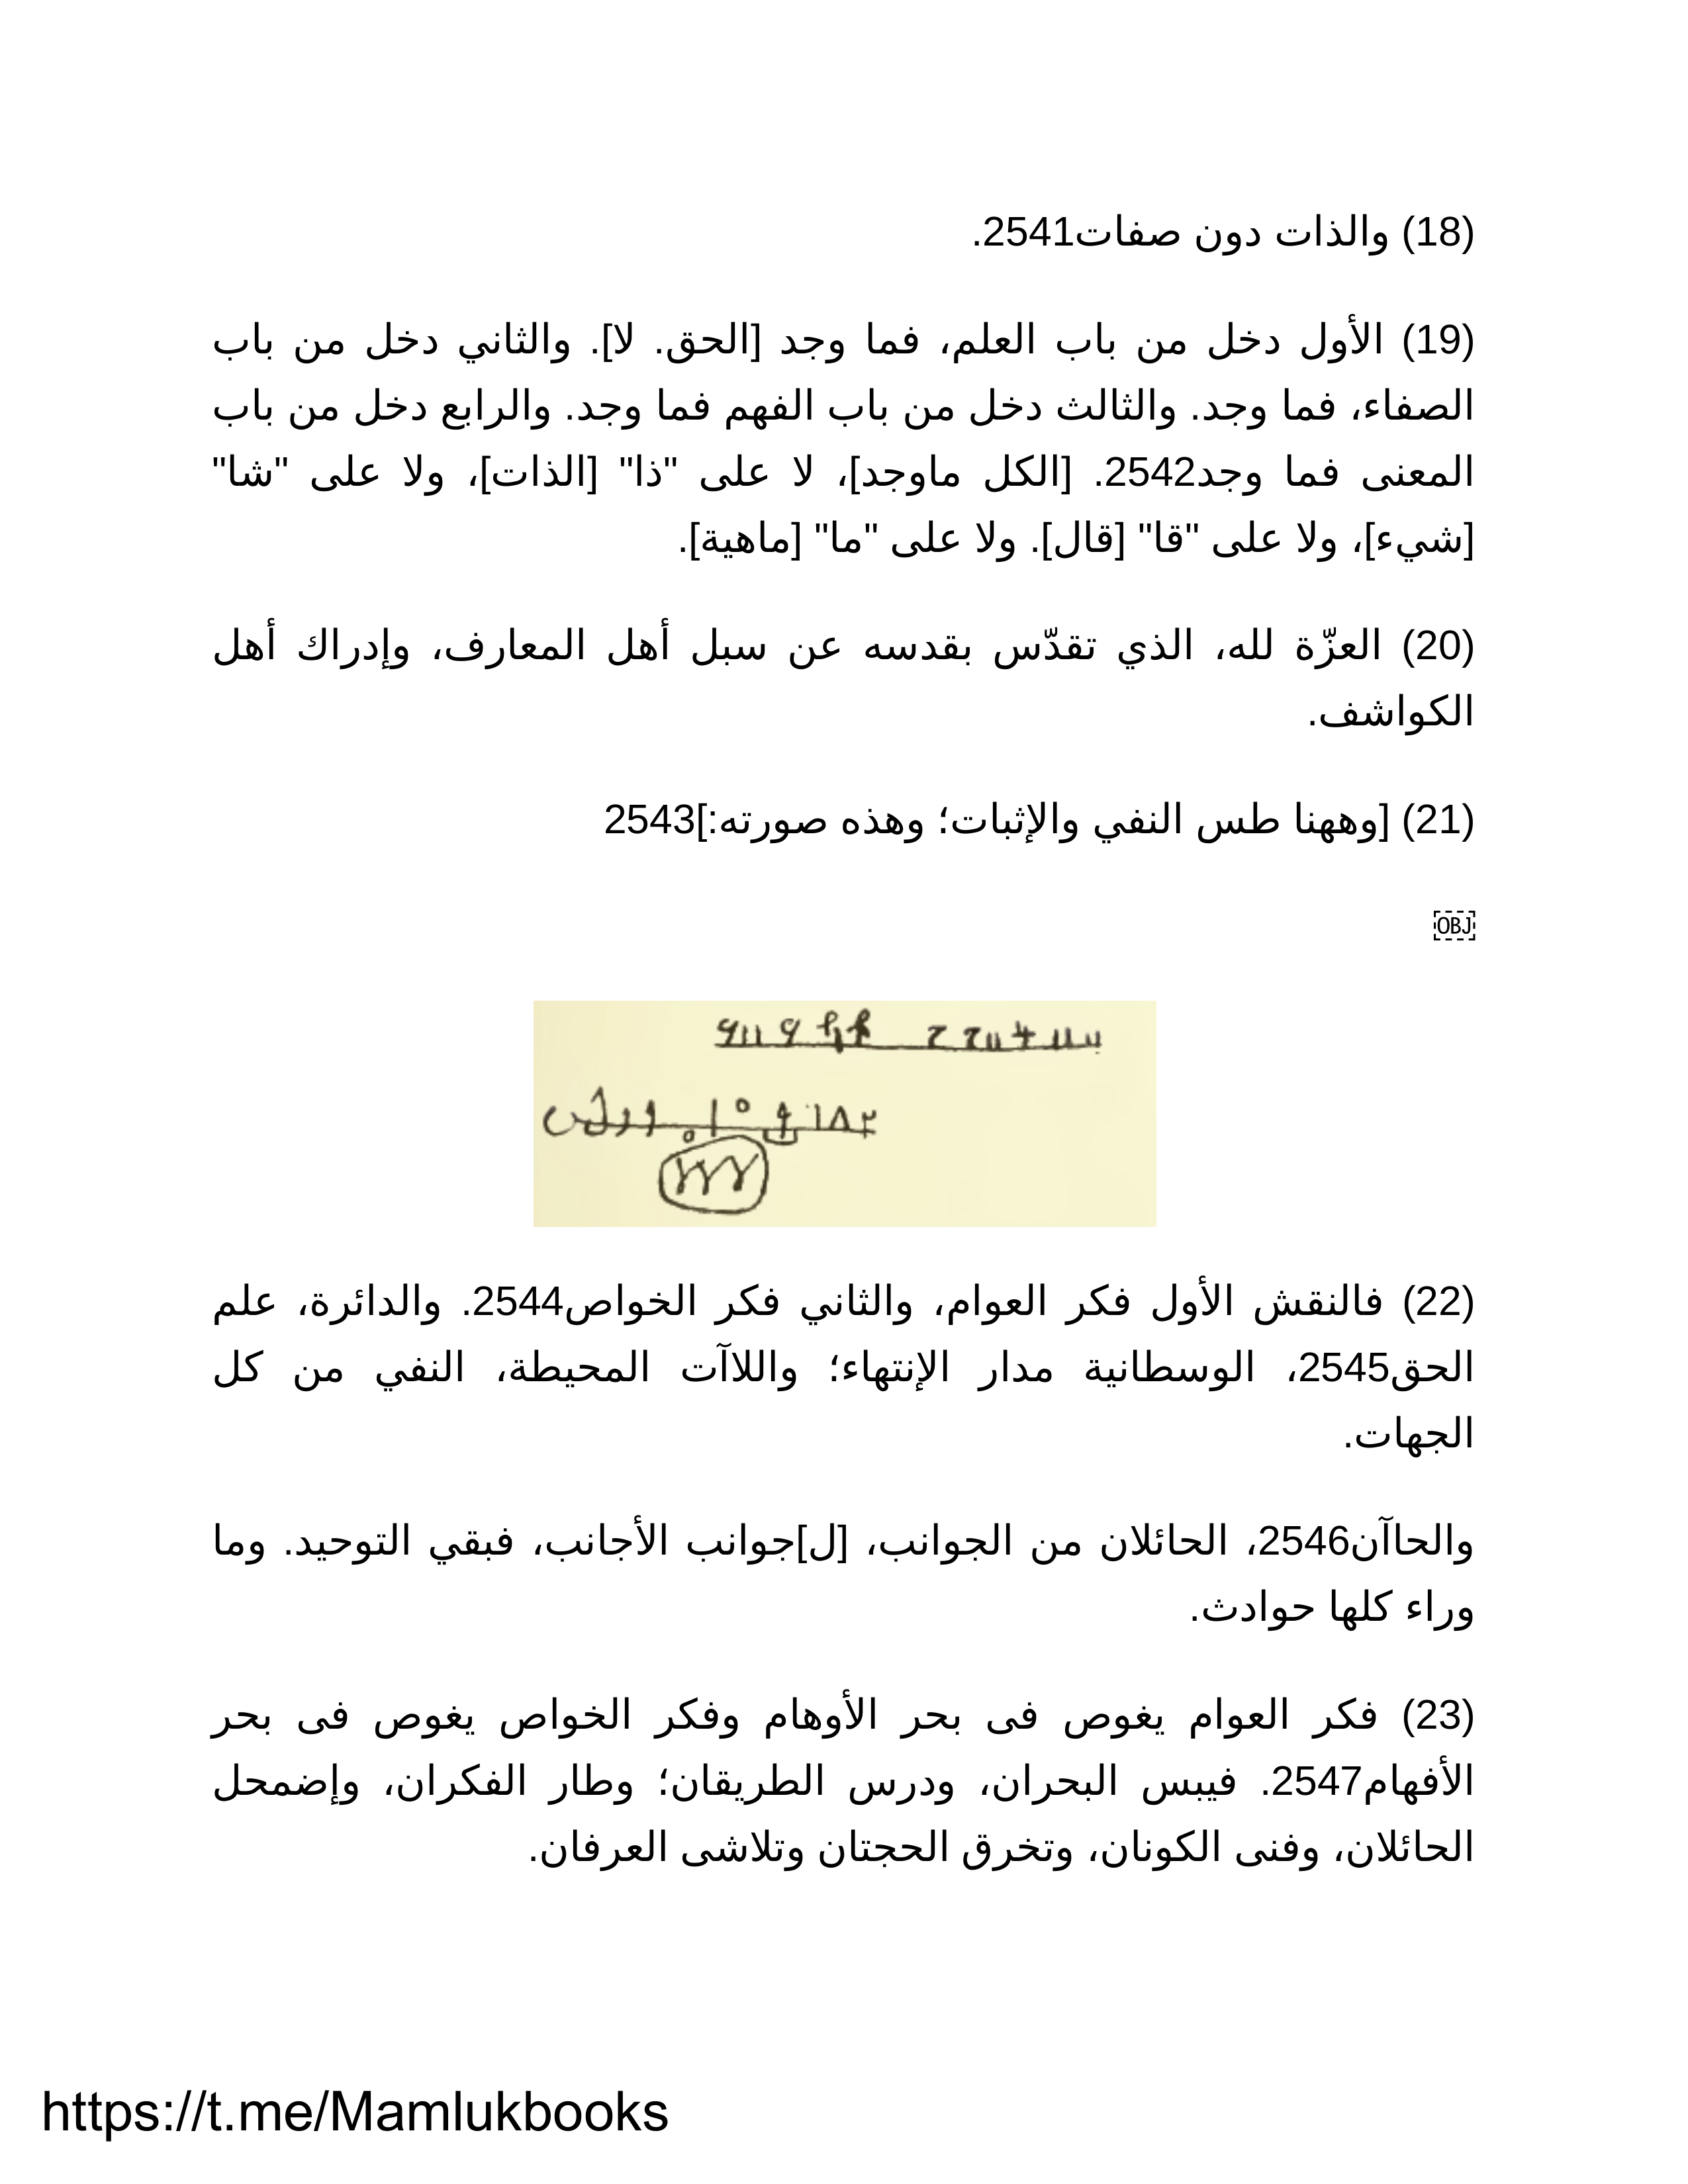 (18) والذات دون صفات2541.
(19) الأول دخل من باب العلم، فما وجد [الحق. لا]. والثاني دخل من باب
الصفاء، فما وجد. والثالث دخل من باب الفهم فما وجد. والرابع دخل من باب
المعنى فما وجد2542. [الكل ماوجد]، لا على "ذا" [الذات]، ولا على "شا"
[شيء]، ولا على "قا" [قال]. ولا على "ما" [ماهية].
(20) العزّة لله، الذي تقدّس بقدسه عن سبل أهل المعارف، وإدراك أهل
الكواشف.
(21) [وههنا طس النفي والإثبات؛ وهذه صورته:]2543
OBJ
(22) فالنقش الأول فكر العوام، والثاني فكر الخواص2544. والدائرة، علم
الحق2545، الوسطانية مدار الإنتهاء؛ واللاآت المحيطة، النفي من كل
الجهات.
والحاآن2546، الحائلان من الجوانب، [ل]جوانب الأجانب، فبقي التوحيد. وما
وراء كلها حوادث.
(23) فكر العوام يغوص فى بحر الأوهام وفكر الخواص يغوص فى بحر
الأفهام2547. فيبس البحران، ودرس الطريقان؛ وطار الفكران، وإضمحل
الحائلان، وفنى الكونان، وتخرق الحجتان وتلاشى العرفان.
https://t.me/Mamlukbooks